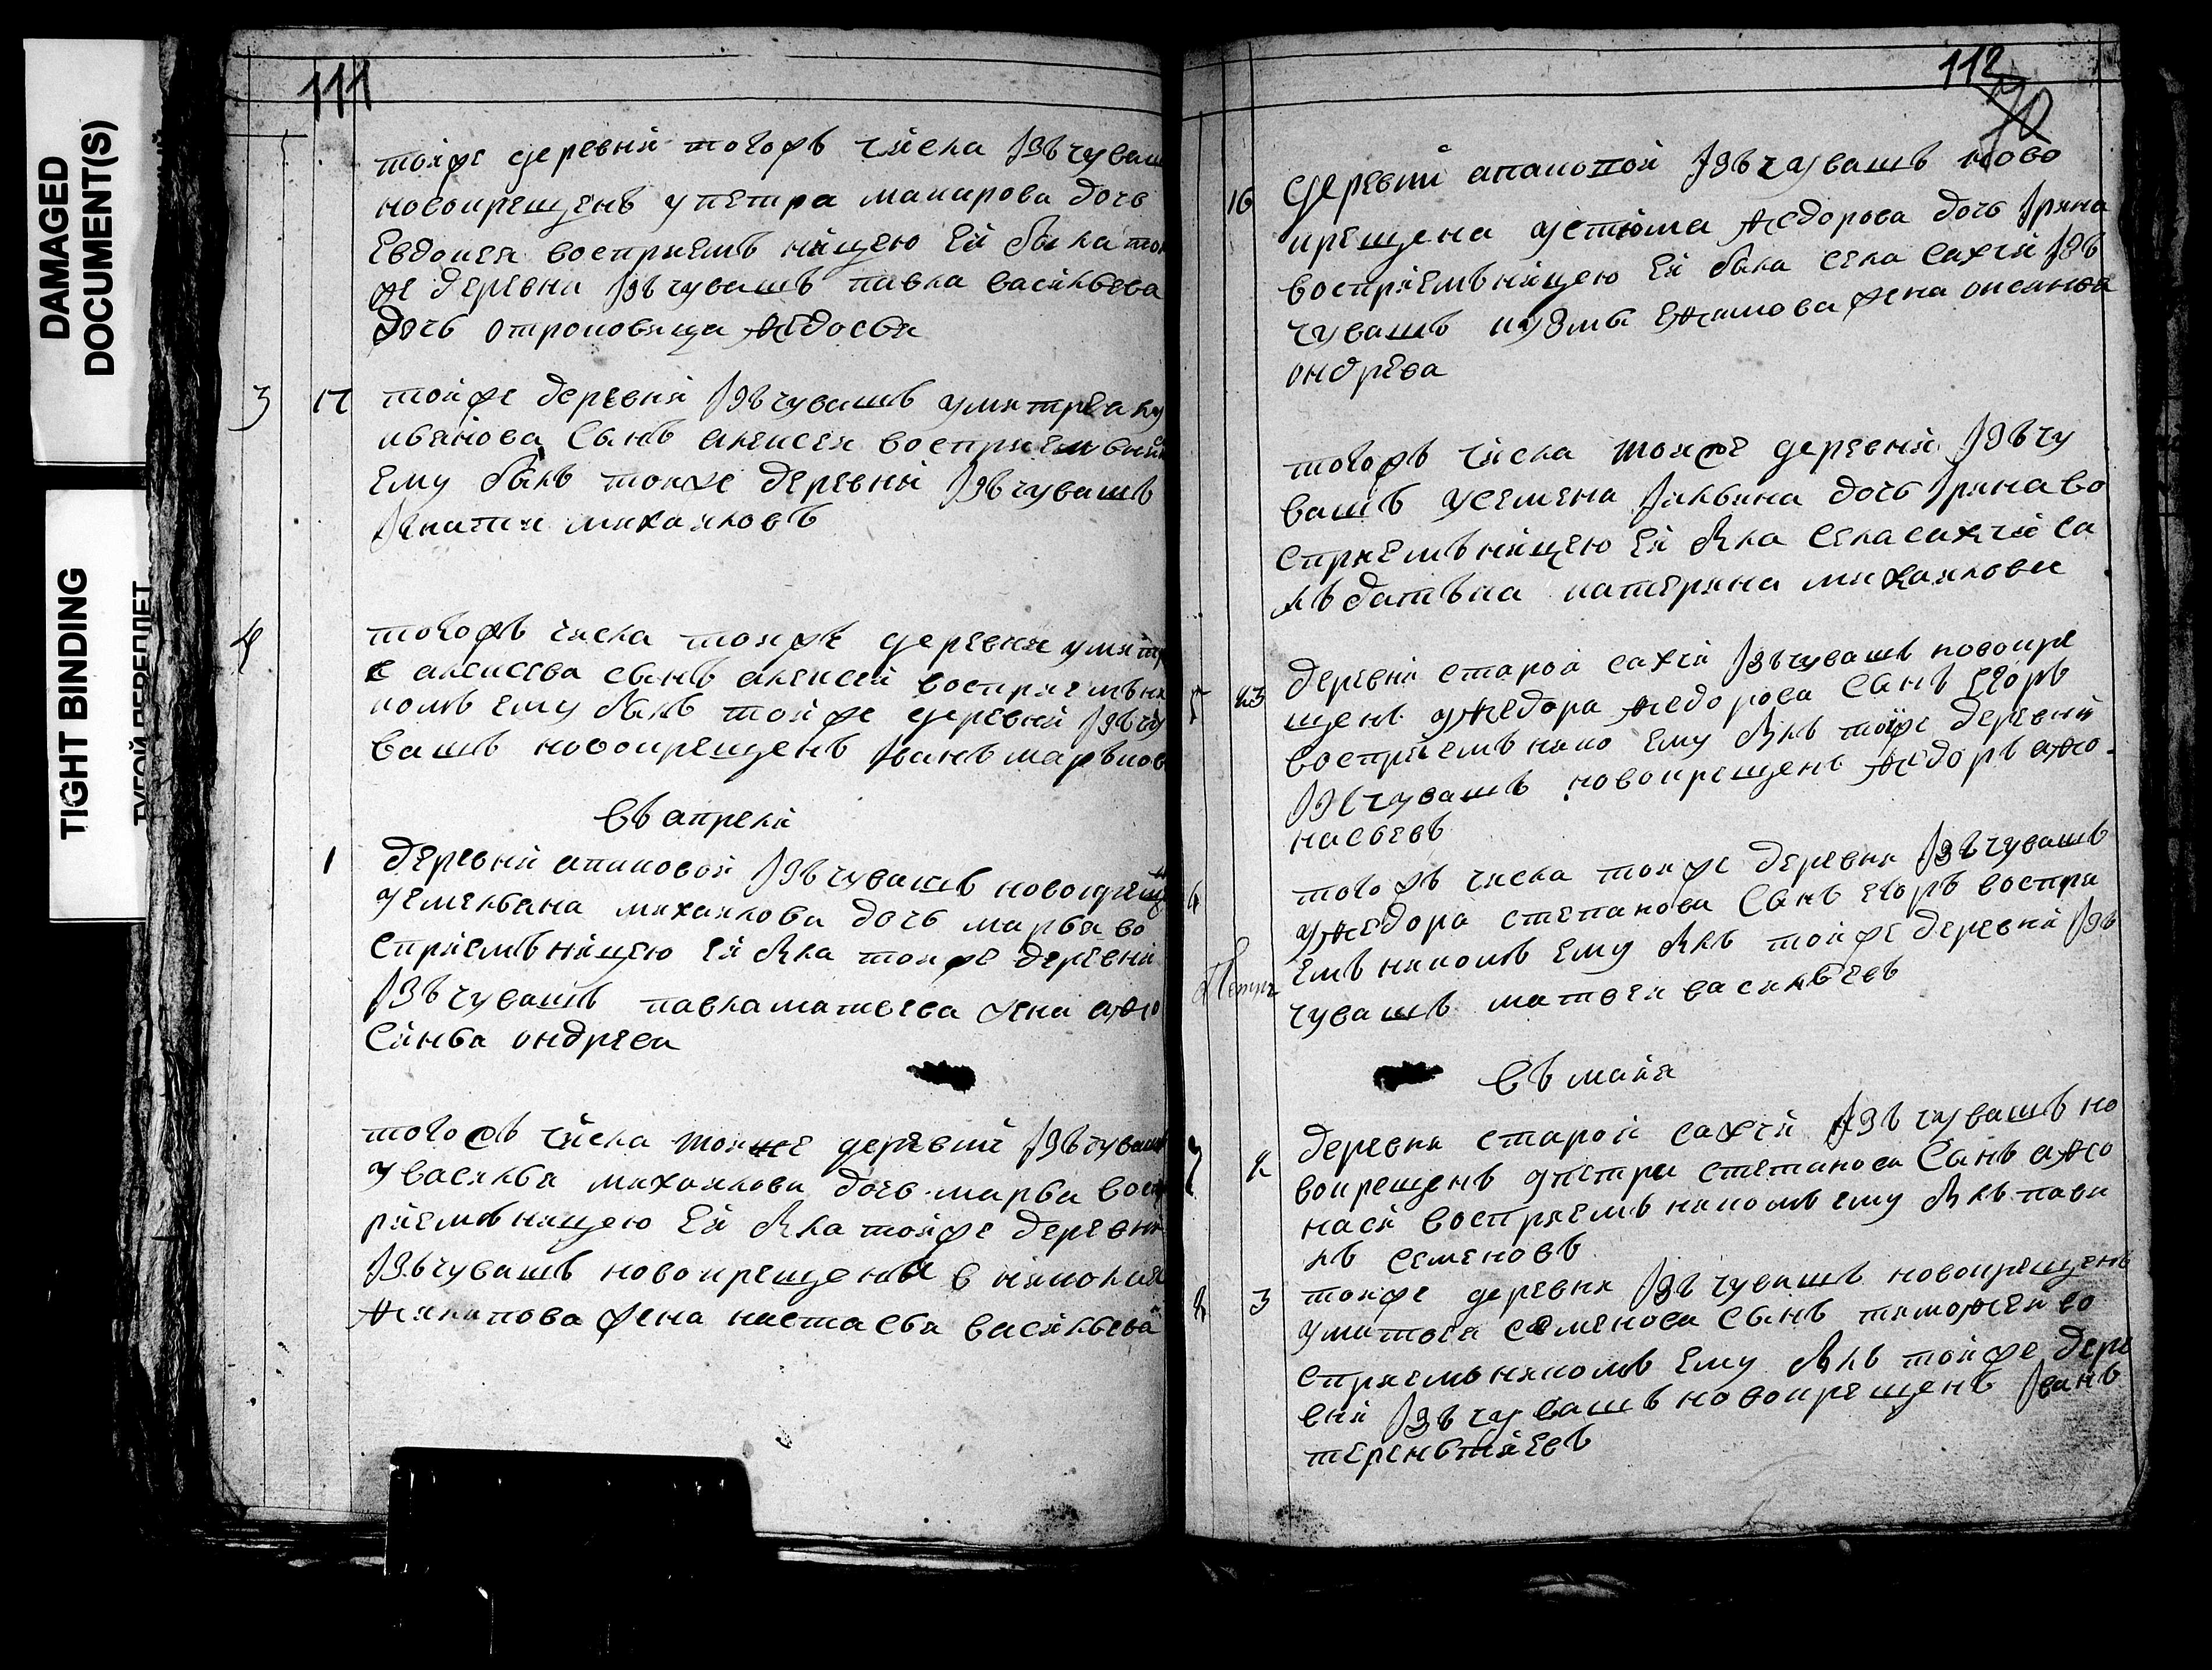 DAMAGED
DOCUMENT(S)
TIGHT BINDING
ТУГОЙ ПЕРЕПЛЕТ
111
тояже деревни тогожъ числа Iзъ чуваш
новокрещенъ у петра макарова дочь
Евдокея восприемъницею Ей была то
же деревни Iзъ чувашъ павла васильева
дочь отроковица Ѳедосья
3 17 тойже деревни Iзъ чувашъ у
сынъ алексея
Ему былъ тояже деревни Iзъ чувашъ
Iгнатеи михаиловъ
4 тогожъ числа тояже деревни у
алексеева сынъ алексей восприемъни
комъ Ему былъ тойже деревни Iзъ чу
вашъ новокрещенъ Iванъ марковъ
въ апрели
1 деревни апаковой Iзъ чувашъ новокрещ
у Емельяна михаилова дочь марья во
сприемъницею Ей была тояже деревни
Iзъ чувашъ павла матвеева жена аѳо
синья ондрева
тогожъ числа тояже деревни Iзъ чуваш
у василья михаилова дочь марья восп
риемъницею Ей была тойже деревни
Iзъ чувашъ новокрещены николая
жена настасья васильева
112
70
16 деревни апакопой Iзъ чувашъ ново
крещена устюма Ѳедорова дочь Iрина
восприемъницею Ей была села сахчи Iзъ
чувашъ кузмы Еѳимова жена оксинья
ондрева
тогожъ числа тояже деревни Iзъ чу
вашъ у семена Iльина дочь Iрина во
сприемъницею Ей была села сахчи са
лъдатъка катерина михаилова
5 23 деревни старой сахчи Iзъ чувашъ новокре
щенъ у Ѳедора Ѳедорова сынъ Егоръ
восприемънико Ему былъ тойже деревни
Iзъ чувашъ новокрещенъ Ѳедоръ аѳо
насьевъ
6 тогожъ числа тояже деревни Iзъ чувашъ
у Ѳедора степанова сынъ Егоръ воспри
емъникомъ Ему былъ тойже деревни Iзъ
чувашъ матвеи васильевъ
въ маия
7 2 деревни старой сахчи Iзъ чувашъ но
вокрещенъ у петра степанова сынъ аѳо
насй восприемъникомъ Ему былъ паве
лъ семеновъ
8 3 тояже деревни Iзъ чувашъ новокрещенъ
у матвея семенова сынъ тимоѳей во
сприемъникомъ Ему былъ тойже дере
вни Iзъ чувашъ новокрещенъ Iванъ
терентиевъ